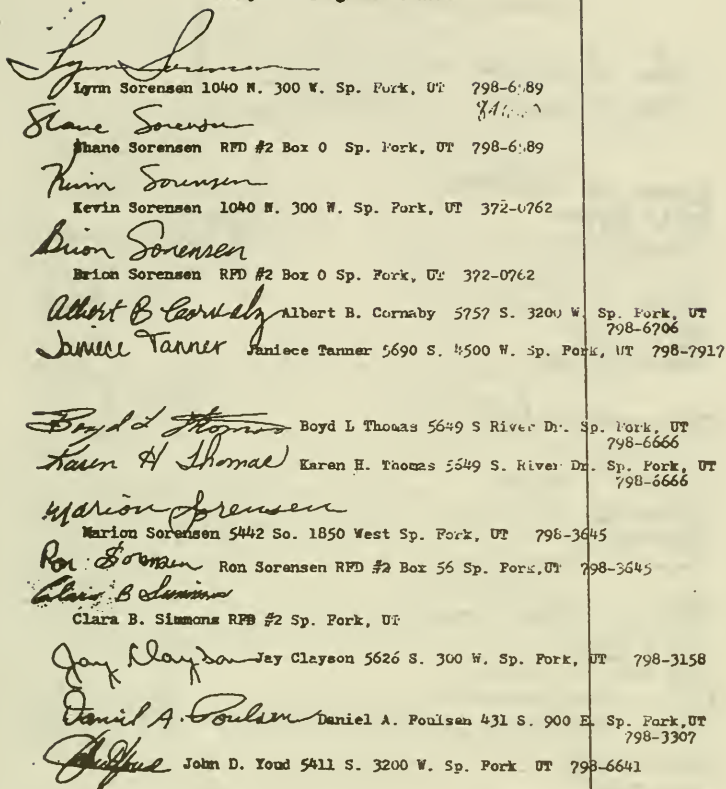 Lynn Sorensen
Lynn Sorensen 1040 N. 300 W. Sp. Fork, UT 798-6 89
Shane Sorensen
Shane Sorensen RFD #2 Box 0 Sp. Fork, UT 798-6 89
Kevin Sorensen
Kevin Sorensen 1040 N. 300 W. Sp. Fork, UT 372-0762
Brion Sorensen
Brion Sorensen RFD #2 Box 0 Sp. Fork, UT 372-0762
Albert B Cornaby Albert B. Cornaby 5757 S. 3200 W. Sp. Fork, UT
798-6706
Janiece Tanner Janiece Tanner 5690 S. 4500 W. Sp. Fork, UT 798-7917
Boyd L Thomas Boyd L Thomas 5649 S River Dr. Sp. Fork, UT
798-6666
Karen H Thomas Karen H. Thomas 5649 S. River Dr. Sp. Fork, UT
798-6666
Marion Sorensen
Marion Sorensen 5442 So. 1850 West Sp. Fork, UT 798-3645
Ron Sorensen Ron Sorensen RFD #2 Box 56 Sp. Fork,UT 798-3645
Clara B Simmons
Clara B. Simmons RFD #2 Sp. Fork, UT
Jay Clayson Jay Clayson 5626 S. 300 W. Sp. Fork, UT 798-3158
Daniel A. Poulsen Daniel A. Poulsen 431 S. 900 E. Sp. Fork,UT
798-3307
John D. Youd 5411 S. 3200 W. Sp. Fork UT 798-6641